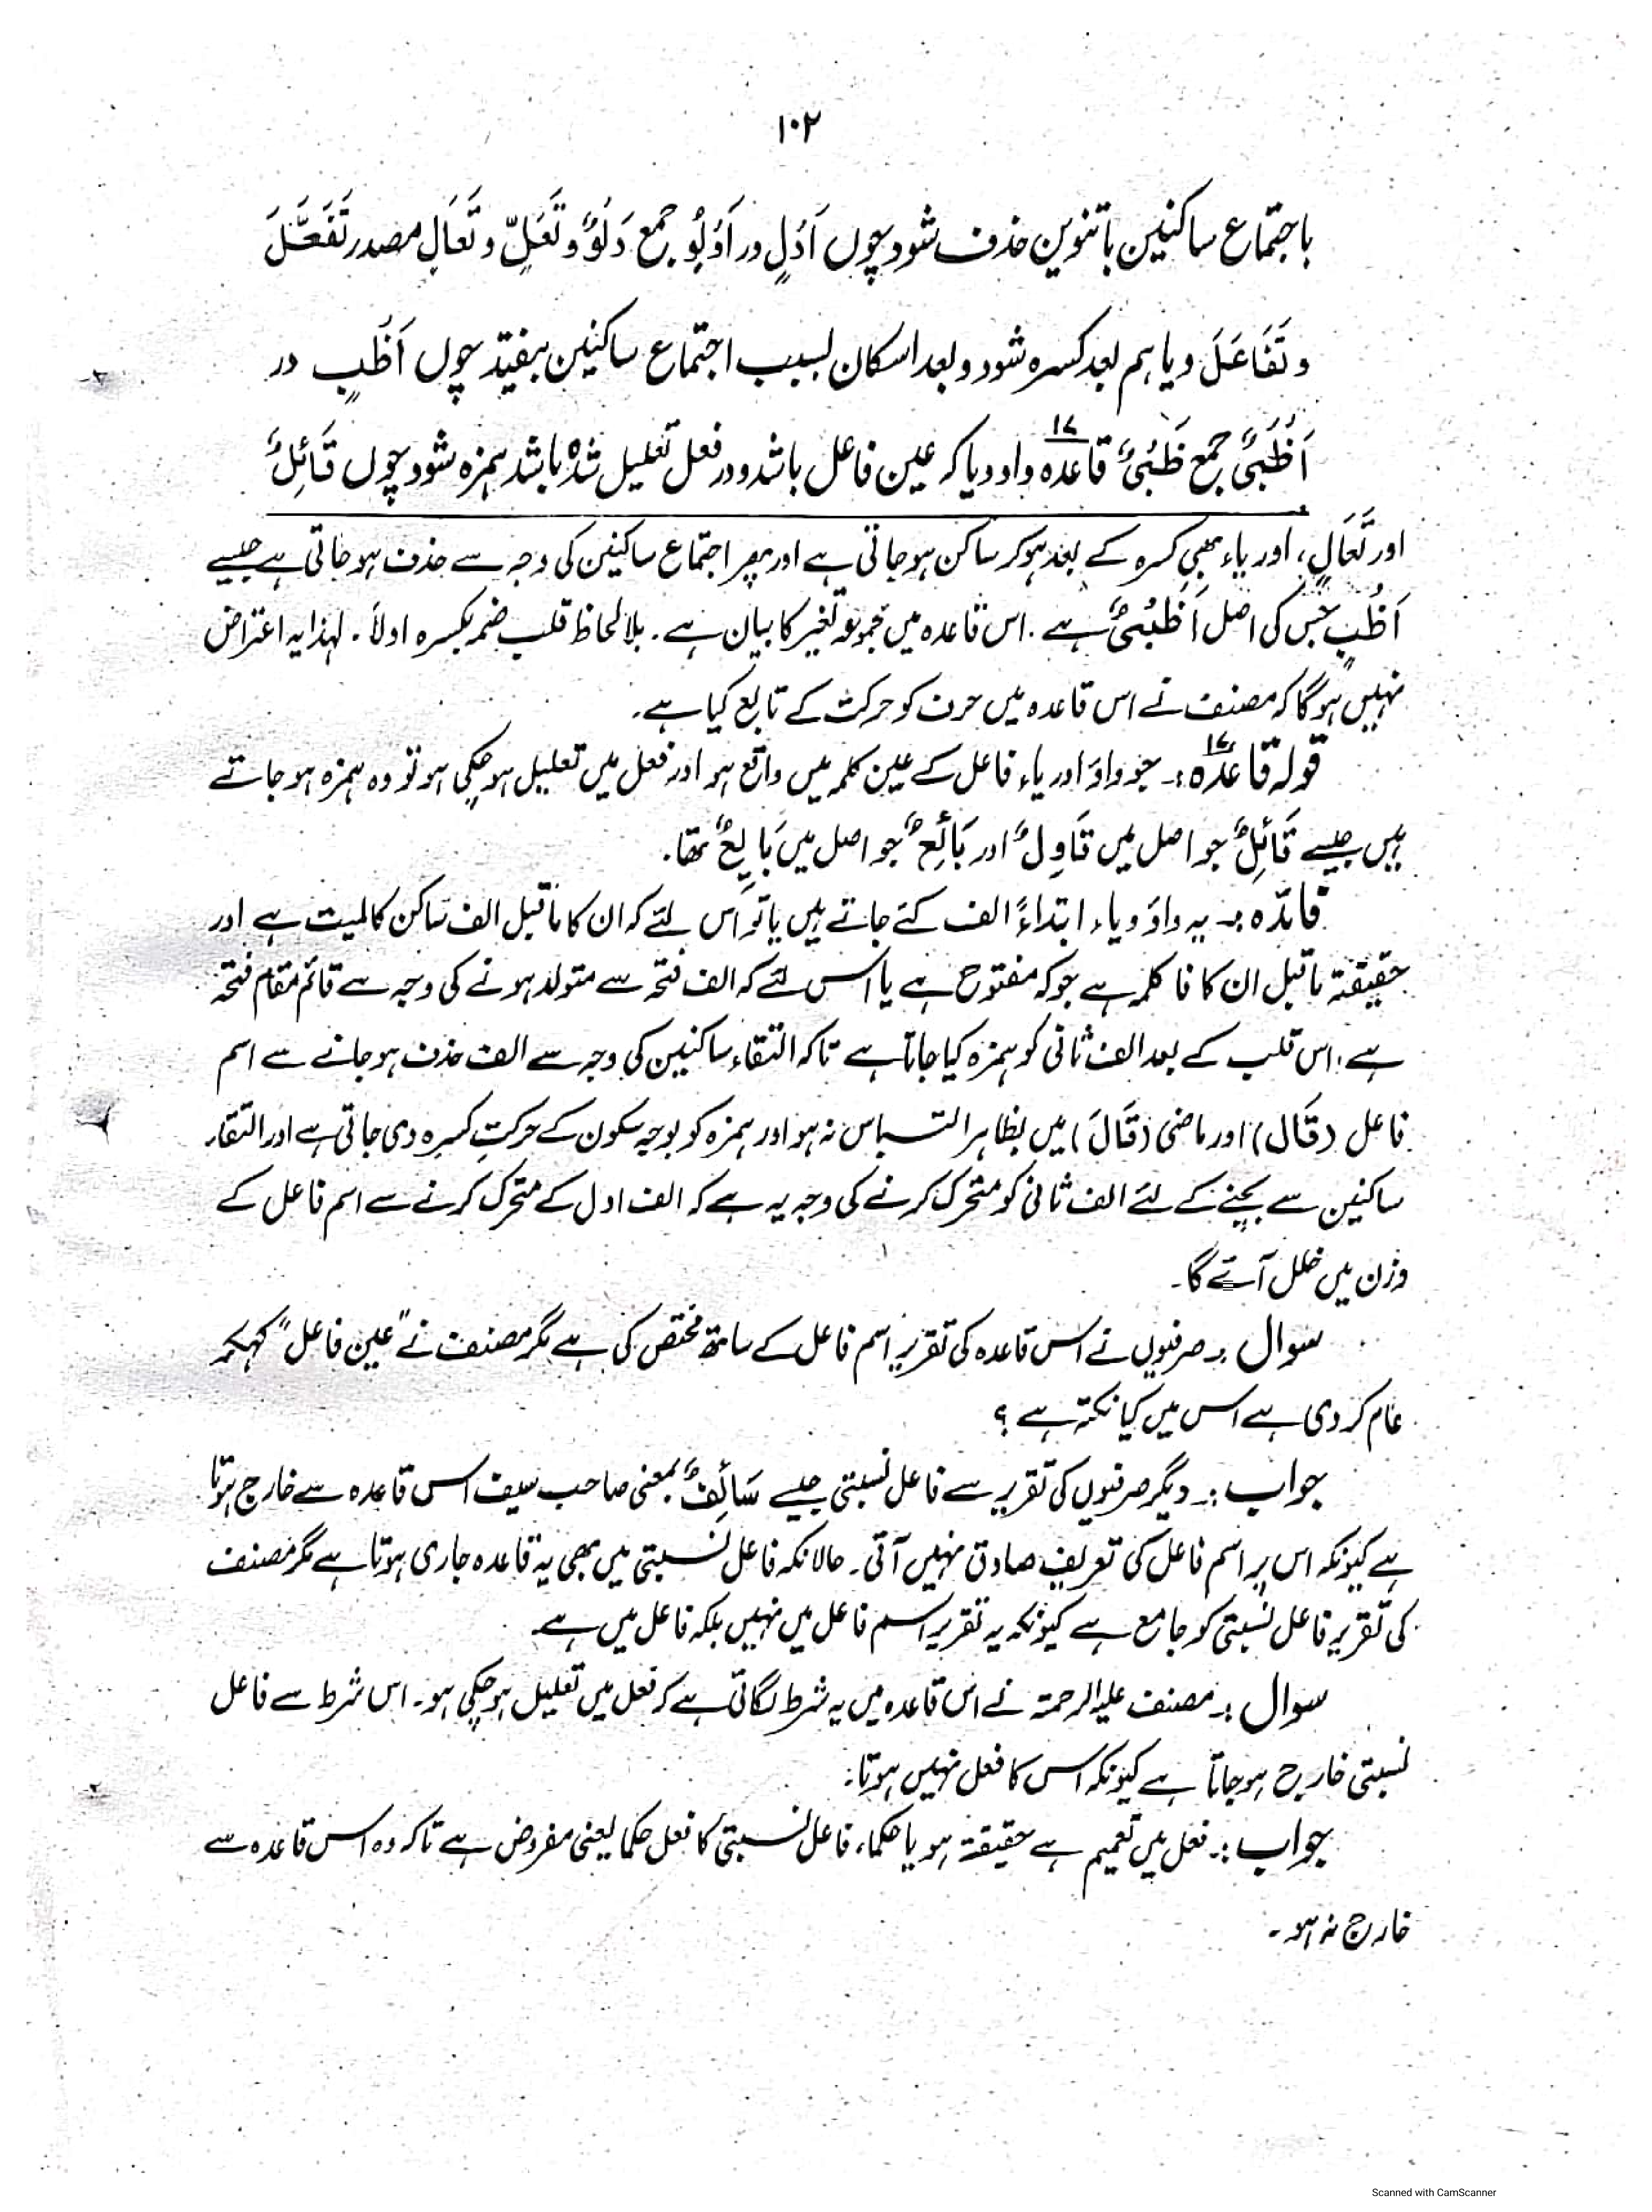 ۱۰۲
باجتماع ساکنین باتنوین حذف شود چوں اَدْلٍ در اَدْلُوٌ جمع دَلْوٌ و تَعَلٍّ و تَعَالٍ مصدر تَفَعَّلَ
و تَفَاعَلَ و یا ہم بعد کسرہ شود و بعد اسکان بسبب اجتماع ساکنین بیفتد چوں اَظْبٍ در
اَظْبُیٌ جمع ظَبْیٌ قاعدہ ۱۷ واو و یا کہ عین فاعل باشد و در فعل تعلیل شدہ باشد ہمزہ شود چوں قَائِلٌ
اور تَعَالٍ، اور یاء بھی کسرہ کے بعد ہوکر ساکن ہوجاتی ہے اور پھر اجتماع ساکنین کی وجہ سے حذف ہوجاتی ہے جیسے
اَظْبٍ جس کی اصل اَظْبُیٌ ہے. اس قاعدہ میں مجموعہ تغیر کا بیان ہے. بلا لحاظ قلب ضمہ بکسرہ اولاً. لہٰذا یہ اعتراض
نہیں ہوگا کہ مصنف نے اس قاعدہ میں حرف کو حرکت کے تابع کیا ہے.
قولہ قاعدہ ۱۷ :۔ جو واؤ اور یاء فاعل کے عین کلمہ میں واقع ہو اور فعل میں تعلیل ہوچکی ہو تو وہ ہمزہ ہوجاتے
ہیں جیسے قَائِلٌ جو اصل میں قَاوِلٌ اور بَائِعٌ جو اصل میں بَایِعٌ تھا.
فائدہ :۔ یہ واؤ و یاء ابتداءً الف کئے جاتے ہیں یا تو اس لئے کہ ان کا ماقبل الف ساکن کالمیت ہے اور
حقیقۃ ماقبل ان کا فا کلمہ ہے جوکہ مفتوح ہے یا اس لئے کہ الف فتحہ سے متولد ہونے کی وجہ سے قائم مقام فتحہ
ہے، اس قلب کے بعد الف ثانی کو ہمزہ کیا جاتا ہے تاکہ التقاء ساکنین کی وجہ سے الف حذف ہوجانے سے اسم
فاعل (قَال) اور ماضی (قَالَ) میں بظاہر التباس نہ ہو اور ہمزہ کو بوجہ سکون کے حرکتِ کسرہ دی جاتی ہے اور التقاء
ساکنین سے بچنے کے لئے الف ثانی کو متحرک کرنے کی وجہ یہ ہے کہ الف اول کے متحرک کرنے سے اسم فاعل کے
وزن میں خلل آئے گا۔
سوال :۔ صرفیوں نے اس قاعدہ کی تقریر اسم فاعل کے ساتھ مختص کی ہے مگر مصنف نے "عین فاعل" کہہ کر
عام کردی ہے اس میں کیا نکتہ ہے ؟
جواب :۔ دیگر صرفیوں کی تقریر سے فاعل نسبتی جیسے سَائِفٌ بمعنی صاحب سیف اس قاعدہ سے خارج ہوتا
ہے کیونکہ اس پر اسم فاعل کی تعریف صادق نہیں آتی۔ حالانکہ فاعل نسبتی میں بھی یہ قاعدہ جاری ہوتا ہے مگر مصنف
کی تقریر فاعل نسبتی کو جامع ہے کیونکہ یہ تقریر اسم فاعل میں نہیں بلکہ فاعل میں ہے۔
سوال :۔ مصنف علیہ الرحمۃ نے اس قاعدہ میں یہ شرط لگائی ہے کہ فعل میں تعلیل ہوچکی ہو۔ اس شرط سے فاعل
نسبتی خارج ہوجاتا ہے کیونکہ اس کا فعل نہیں ہوتا.
جواب :۔ فعل میں تعمیم ہے حقیقۃ ہو یا حکما، فاعل نسبتی کا فعل حکما یعنی مفروض ہے تاکہ وہ اس قاعدہ سے
خارج نہ ہو۔
Scanned with CamScanner